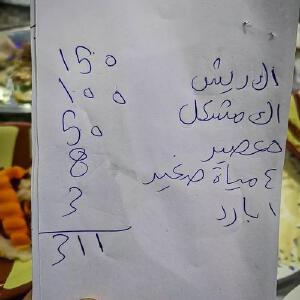 ك ريش 150
ك مشكل 100
عصير 50
٤ مياة صغير 8
١ بارد 3
311